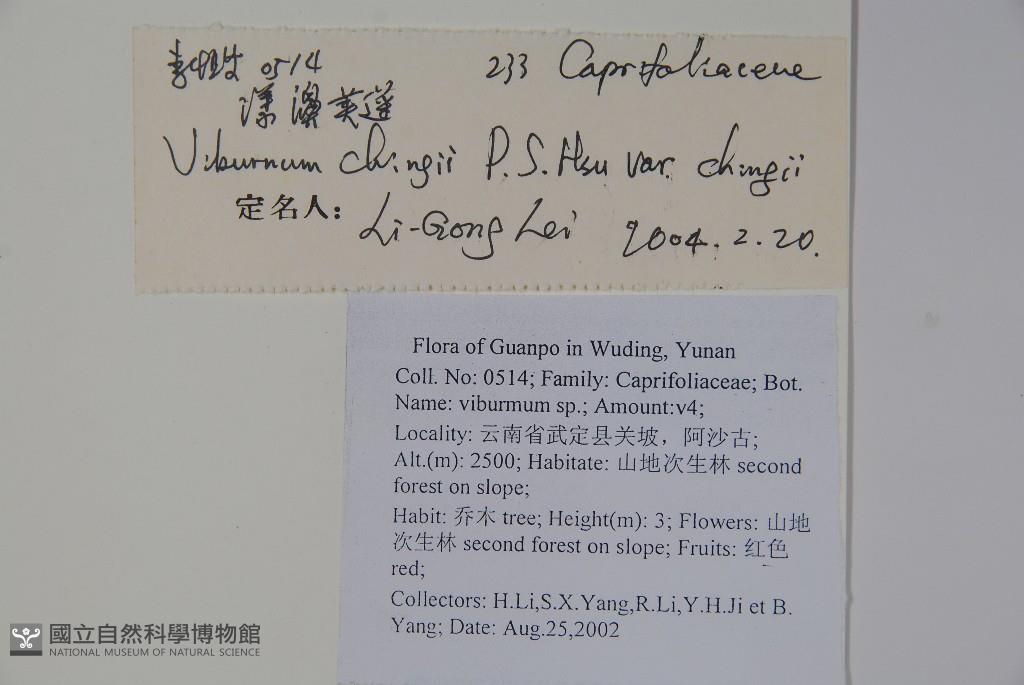 李恒 0514 233 Caprifoliaceae
漾濞荚蒾
Viburnum chingii P.S.Hsu var. chingii
定名人: Li-Gong Lei 2004.2.20.
Flora of Guanpo in Wuding, Yunan
Coll. No: 0514; Family: Caprifoliaceae; Bot.
Name: viburmum sp.; Amount:v4;
Locality: 云南省武定县关坡，阿沙古;
Alt.(m): 2500; Habitate: 山地次生林 second
forest on slope;
Habit: 乔木 tree; Height(m): 3; Flowers: 山地
次生林 second forest on slope; Fruits: 红色
red;
Collectors: H.Li,S.X.Yang,R.Li,Y.H.Ji et B.
Yang; Date: Aug.25,2002
國立自然科學博物館
NATIONAL MUSEUM OF NATURAL SCIENCE